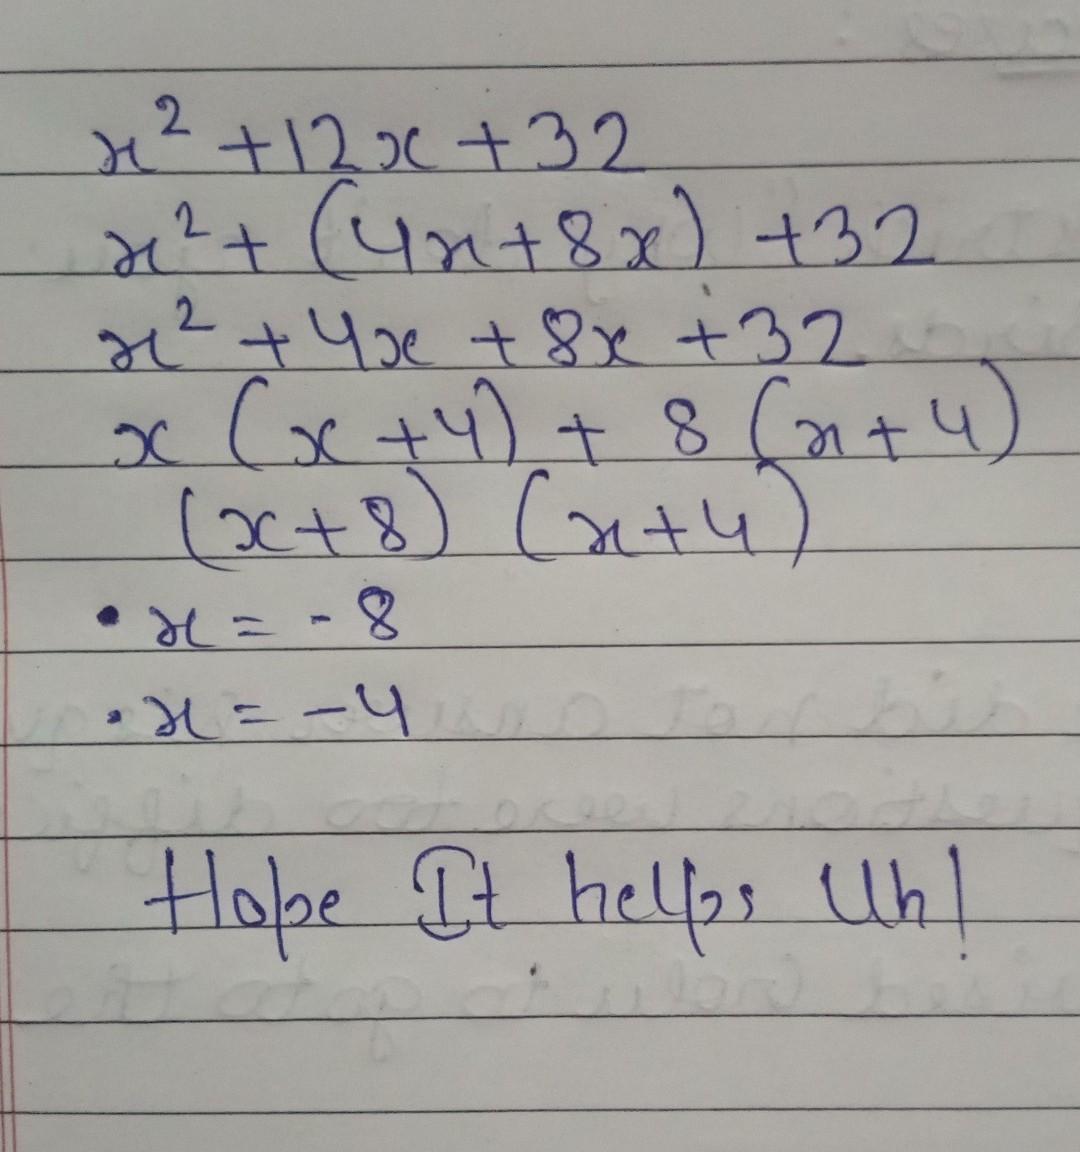 x² + 12x + 32
x² + (4x + 8x) + 32
x² + 4x + 8x + 32
x (x + 4) + 8 (x + 4)
(x + 8) (x + 4)
• x = - 8
• x = - 4
Hope It helps Uh!